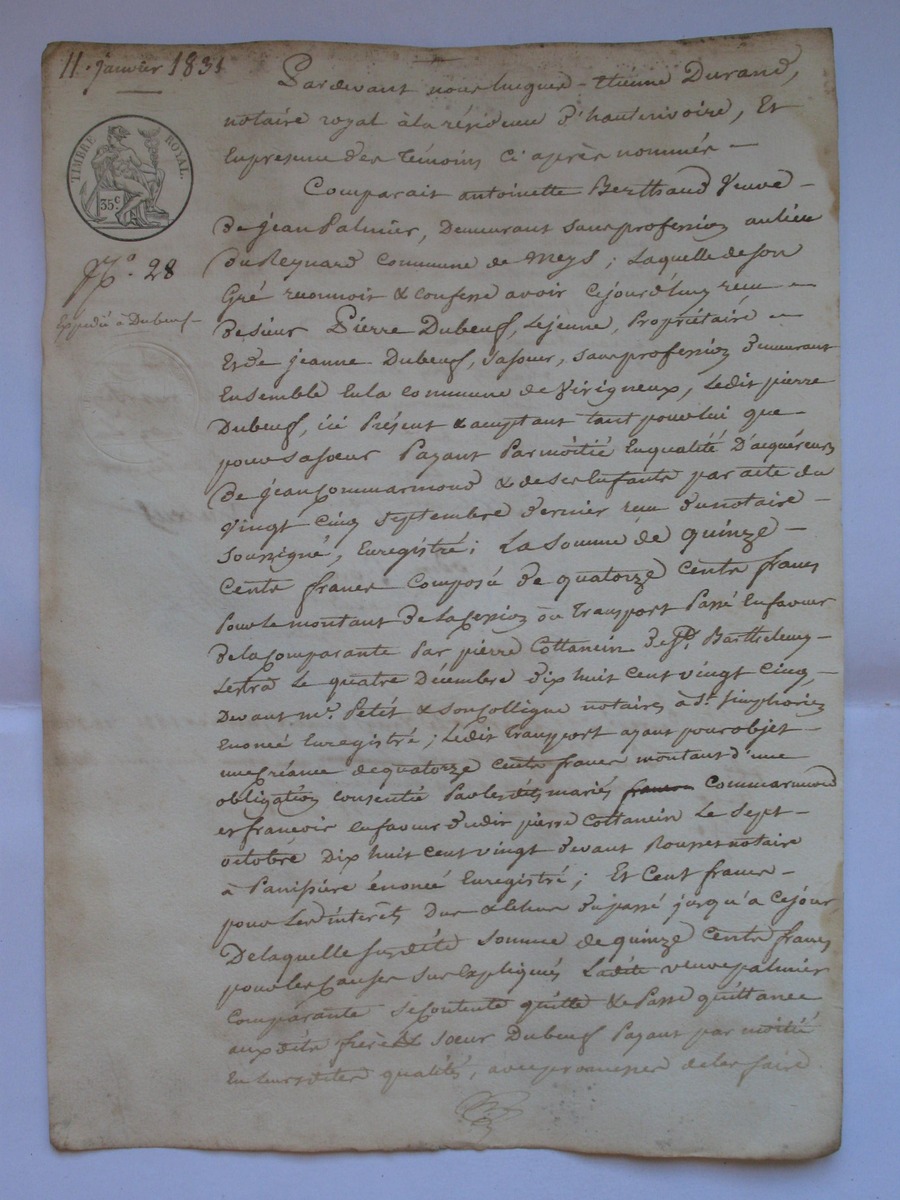 11. janvier 1831
TIMBRE ROYAL.
35 c
N.o 28
Expédié à Dubeuf
Pardevant nous hugues-Etienne Durand,
notaire royal à la résidence d'hauterivoire, Et
En presence des témoins ci après nommés
Comparait antoinette Berthaud Veuve
de jean Palmier, demeurant sans profession au lieu
du Reynard commune de Meys; Laquelle de son
Gré reconnoit & confesse avoir cejourd'huy reçu
de sieur Pierre Dubeuf, Lejeune, Propriétaire
Et de jeanne Dubeuf, sa sœur, sans profession demeurant
Ensemble En la commune de Virigneux, Ledit pierre
Dubeuf, ici Présent & acceptant tant pour lui que
pour sa sœur Payant Par moitié En qualité D'acquéreurs
de jean Commarmond & de ses Enfants par acte du
Vingt cinq septembre dernier reçu du notaire
soussigné, Enregistré; La somme de quinze
Cents francs composée de quatorze cents francs
Pour le montant de la Cession ou Transport Passé En faveur
de la Comparante Par pierre Cottancin de St. Barthelemy
Lestra Le quatre Décembre dix huit cent vingt cinq
Devant me. Petit & son Collègue notaires à St. Simphorien
Enoncé Enregistré; Ledit Transport ayant pour objet
une Créance de quatorze cents francs montant d'une
obligation consentie Par lesdits mariés Commarmond
et françois En faveur dudit pierre Cottancin Le sept
octobre Dix huit cent vingt devant Rousset notaire
à Panissière énoncé Enregistré; Et Cent francs
pour Les intérêts dus & Echus du passé jusqu'à ce jour,
De laquelle susdite somme de quinze cents francs
pour les causes sus Expliqués Ladite veuve palmier
comparante se Contente quitte & Passe quittance
aux dits frère & sœur Dubeuf Payant par moitié
En leurs dites qualités, avec promesse de les faire